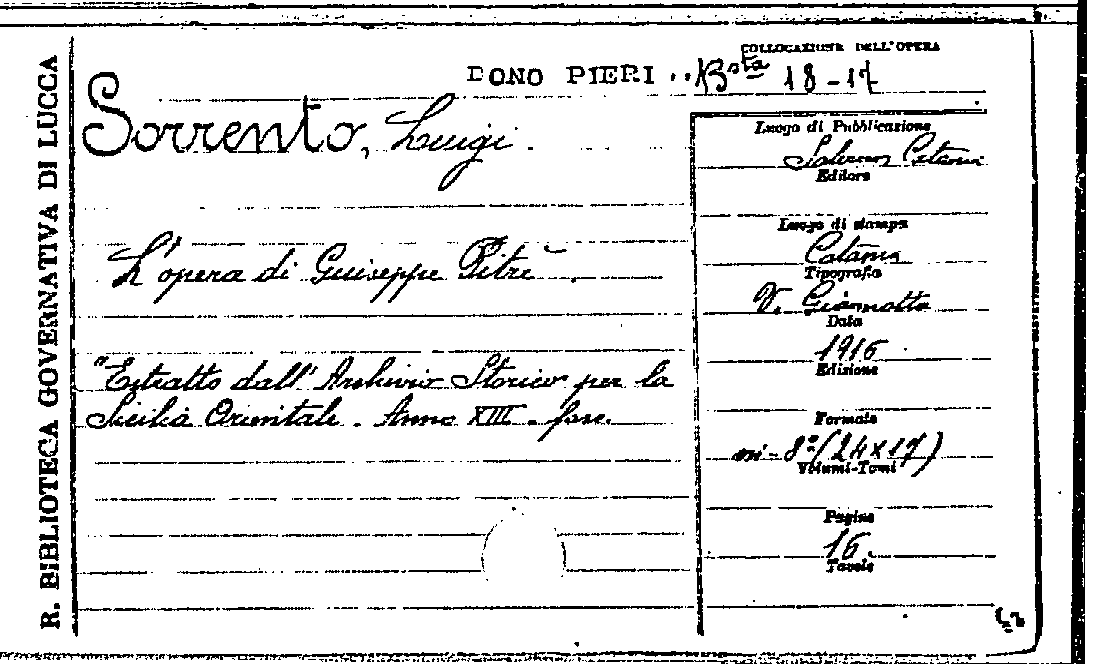 R. BIBLIOTECA GOVERNATIVA DI LUCCA
COLLOCAZIONE DELL'OPERA
DONO PIERI .. Bsta 18-17
Sorrento, Luigi.
L'opera di Giuseppe Pitrè.
"Estratto dall'Archivio Storico per la
Sicilia Orientale. Anno XIII. fasc.
Luogo di Pubblicazione
Catania
Editore
Luogo di stampa
Catania
Tipografia
V. Giannotta
Data
1916
Edizione
Formato
in-8°(24x17)
Volumi-Tomi
Pagine
16.
Tavole